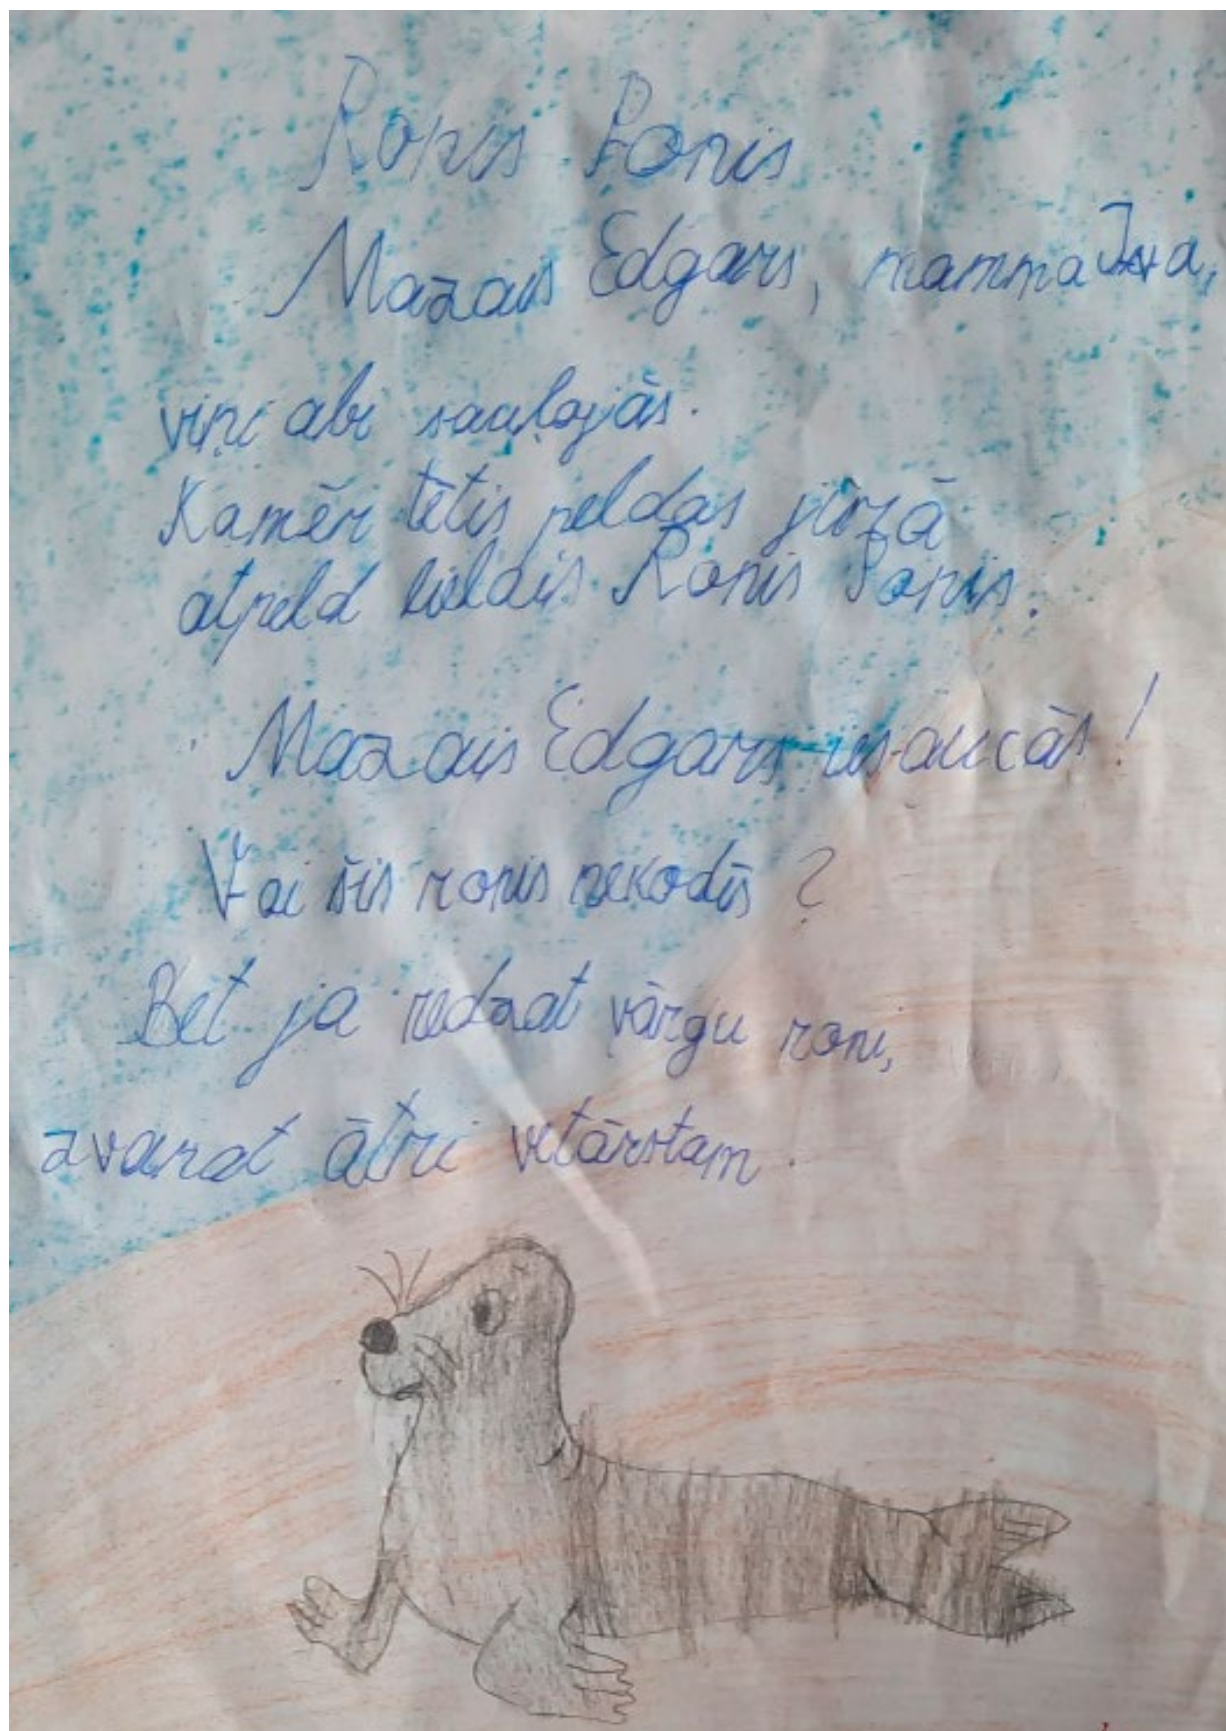 Ronis Ponis
Mazais Edgars, mamma
viņi abi sauļojās.
Kamēr tētis peldas jūrā
atpeld lielais Ronis Ponis.
Mazais Edgars iesaucās!
Vai šis ronis nekodīs?
Bet ja redzat vārgu roni,
zvanat ātri vetārstam.